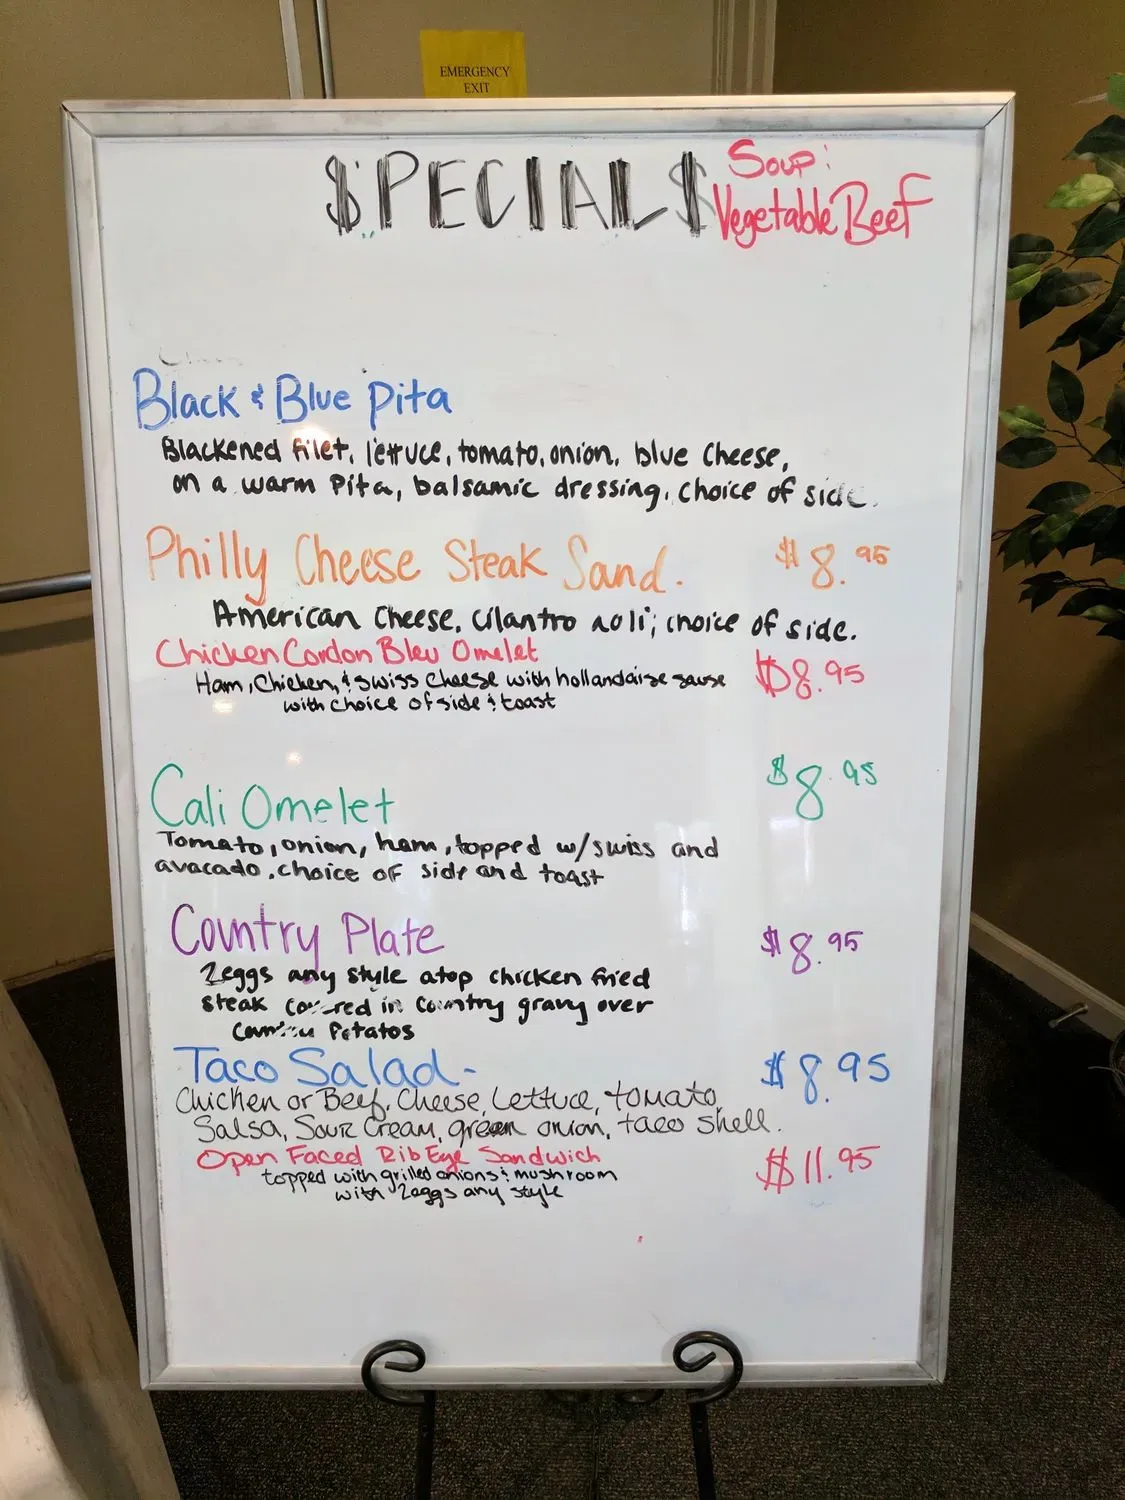 EMERGENCY
EXIT
$PECIAL$
Soup:
Vegetable Beef
Black & Blue Pita
Blackened filet, lettuce, tomato, onion, blue cheese,
on a warm Pita, balsamic dressing, choice of side.
Philly Cheese Steak Sand. $8.95
American Cheese, Cilantro aoli, choice of side.
Chicken Cordon Bleu Omelet $8.95
Ham, Chicken, & swiss cheese with hollandaise sause
with choice of side & toast
Cali Omelet $8.95
Tomato, onion, ham, topped w/swiss and
avacado, choice of side and toast
Country Plate $8.95
2eggs any style atop chicken fried
steak covered in country gravy over
Potatos
Taco Salad- $8.95
Chicken or Beef, Cheese, Lettuce, tomato,
Salsa, Sour Cream, green onion, taco shell.
Open Faced Rib Eye Sandwich $11.95
topped with grilled onions & mushroom
with 2eggs any style